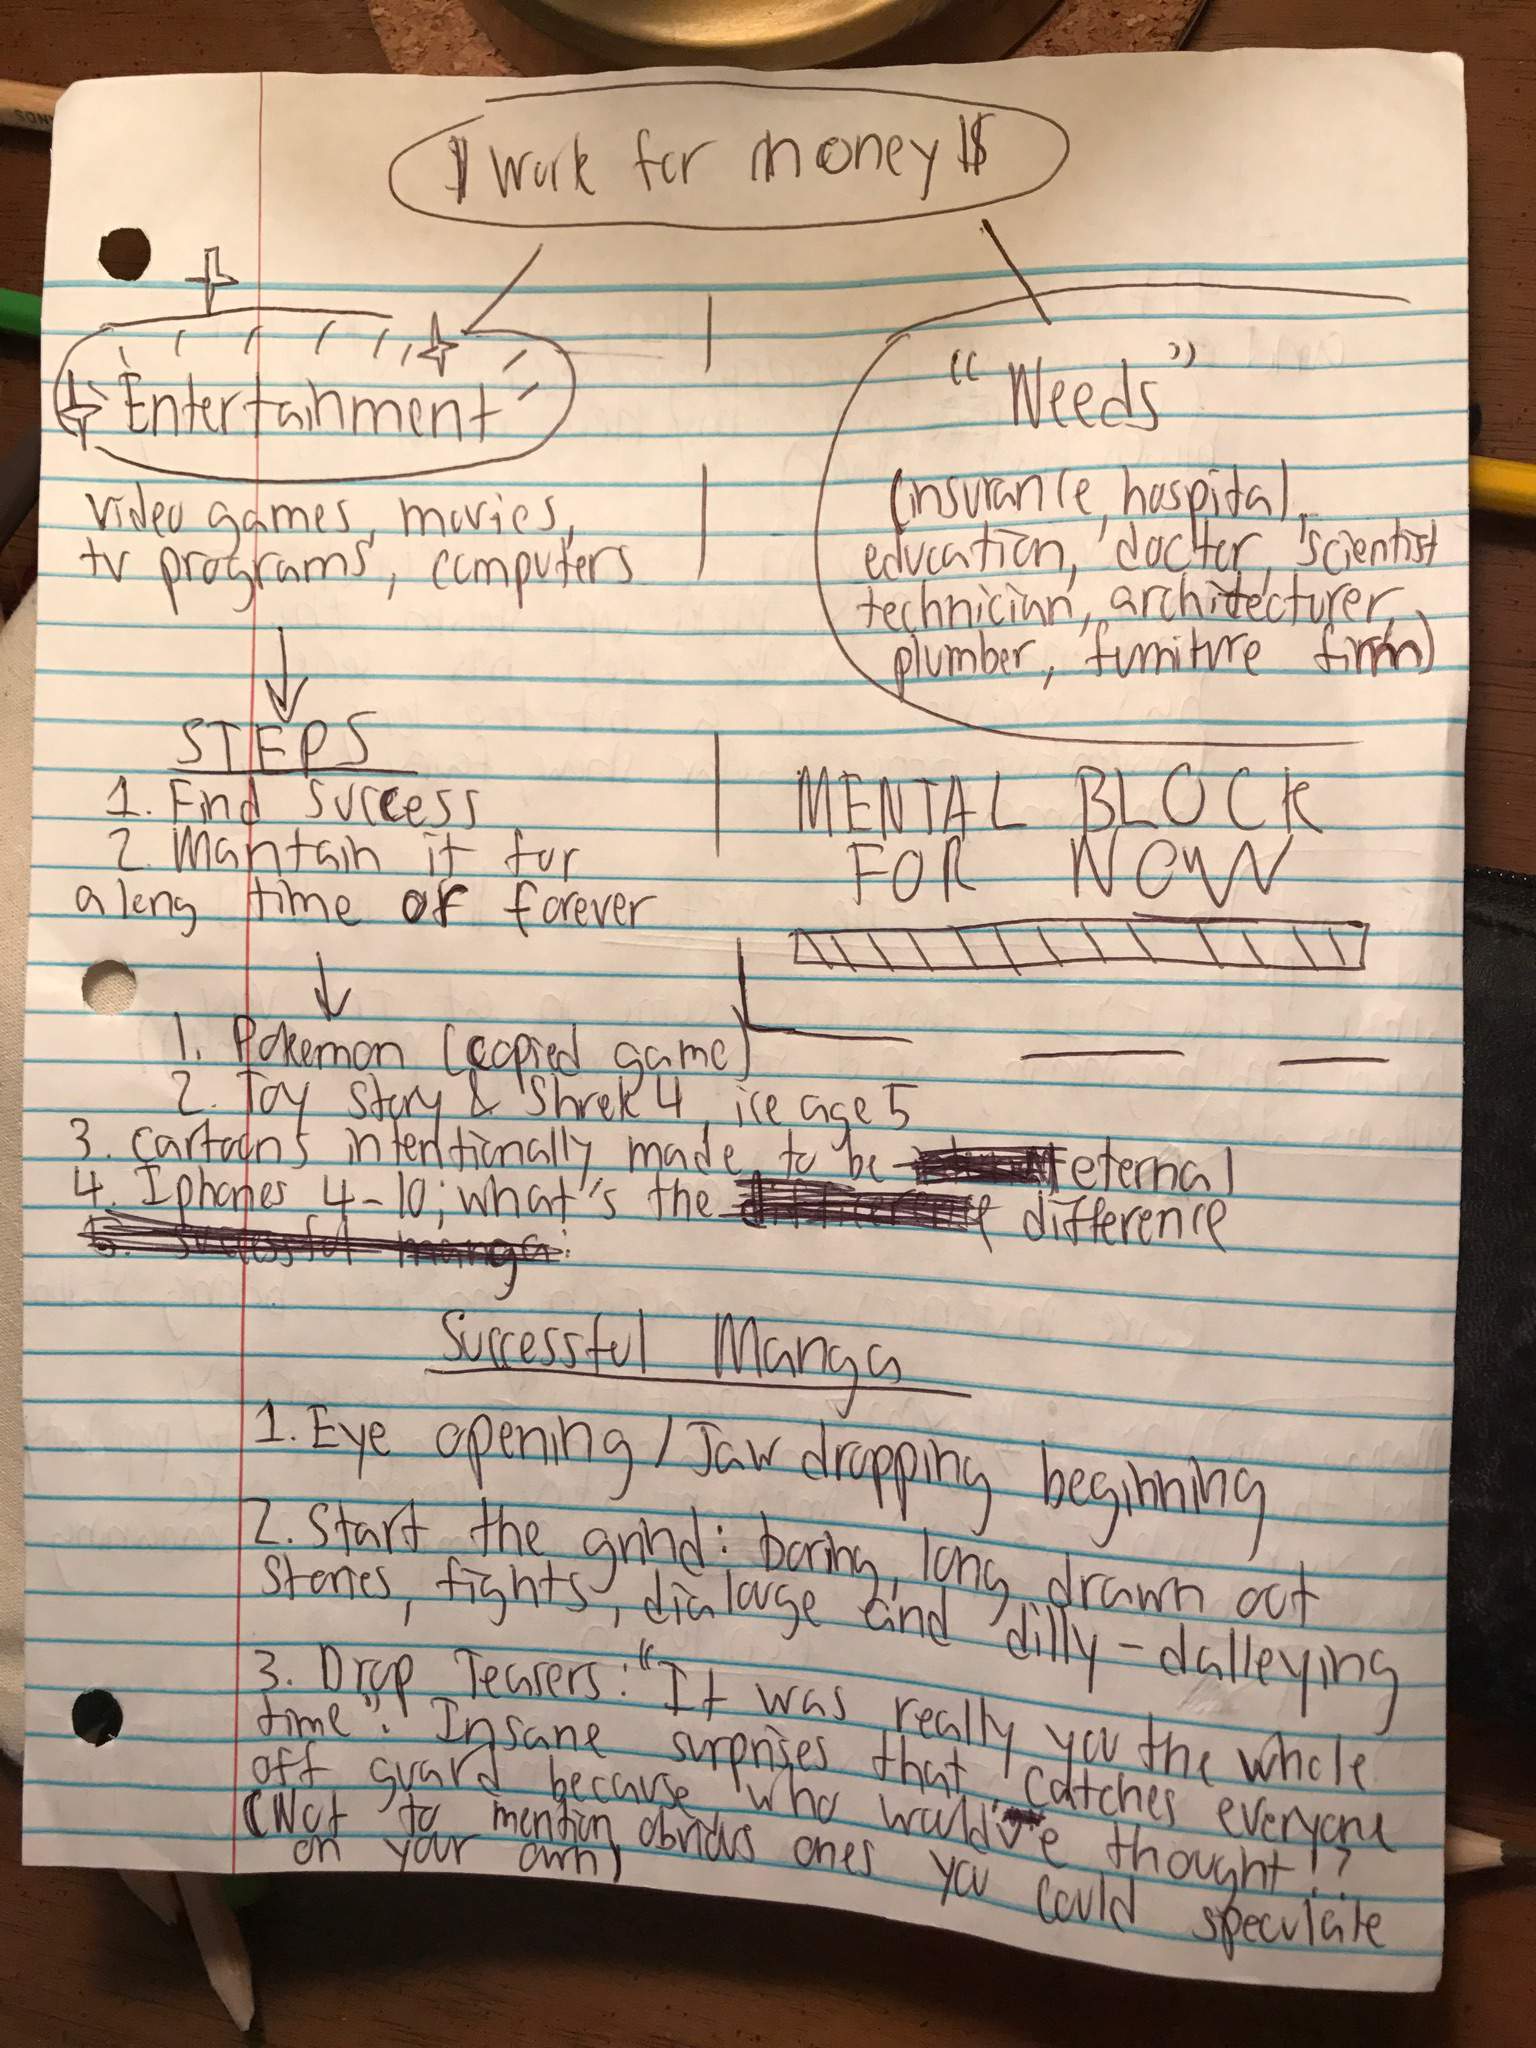 $ Work for money $
"Entertainment"
video games, movies,
tv programs, computers
STEPS
1. Find success
2. Mantain it for
a long time or forever
"Needs"
(insurance, hospital,
education, doctor, scientist
technician, architecturer,
plumber, furniture firm)
MENTAL BLOCK
FOR NOW
1. Pokemon (copied game)
2. Toy Story & Shrek 4, ice age 5
3. cartoons intentionally made to be eternal
4. Iphones 4-10; what's the difference
5. Successful manga:
Successful Manga
1. Eye opening / Jaw dropping beginning
2. Start the grind: boring, long drawn out
stories, fights, dialouge and dilly-dalleying
3. Drop Teasers: "It was really you the whole
time". Insane surprises that catches everyone
off guard because who would've thought!?
(Not to mention obvious ones you could speculate
on your own)